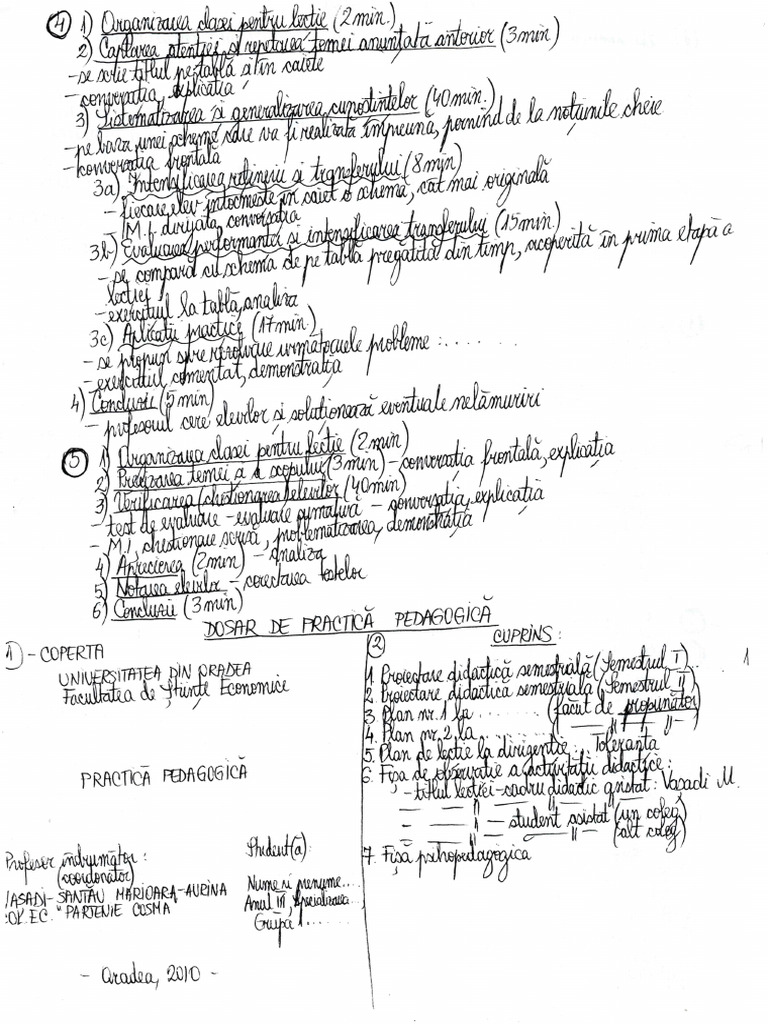 ④ 1) Organizarea clasei pentru lecție (2 min.)
2) Captarea atenției și repetarea temei anunțată anterior (3 min)
- se scrie titlul pe tablă și în caiete
- conversația, explicația
3) Sistematizarea și generalizarea cunoștințelor (40 min.)
- pe baza unei scheme care va fi realizată împreună, pornind de la noțiunile cheie
- conversația frontală
3a) Intensificarea reținerii și transferului (8 min)
- fiecare elev întocmește în caiet o schemă, cât mai originală
- M.i. dirijată, conversația
3b) Evaluarea performanței și intensificarea transferului (15 min.)
- se compară cu schema de pe tablă pregătită din timp, acoperită în prima etapă a
lecției
- exercițiul la tablă, analiza
3c) Aplicații practice (17 min.)
- se propun spre rezolvare următoarele probleme : .......
- exercițiul comentat, demonstrația
4) Concluzii (5 min)
- profesorul cere elevilor și soluționează eventuale nelămuriri
⑤ 1) Organizarea clasei pentru lecție (2 min)
2) Precizarea temei și a scopului (3 min) - conversația frontală, explicația
3) Verificarea (chestionarea) elevilor (40 min)
- test de evaluare - evaluare sumativă - conversația, explicația
- M.I, chestionare scrisă, problematizarea, demonstrația
4) Aprecierea (2 min) - analiza
5) Notarea elevilor - corectarea testelor
6) Concluzii (3 min)
DOSAR DE PRACTICĂ PEDAGOGICĂ
① - COPERTA
UNIVERSITATEA DIN ORADEA
Facultatea de Științe Economice
PRACTICĂ PEDAGOGICĂ
Profesor îndrumător :
(coordonator)
VASADI-SANTĂU MARIOARA-AURINA
COL. EC. "PARTENIE COSMA
Student(ă):
Nume și prenume....
Anul III, specializarea...
Grupa 1.......
- Oradea, 2010 -
②
CUPRINS :
1. Proiectare didactică semestrială (Semestrul I) .. 1
2. Proiectare didactică semestrială (Semestrul II)
3. Plan nr. 1 la ........ (făcut de propunător)
4. Plan nr. 2 la ........ ( — " — " — )
5. Plan de lecție la dirigenție : Toleranța
6. Fișa de observație a activității didactice :
- titlul lecției - cadru didactic asistat : Vasadi M.
— — " — — student asistat (un coleg)
— — " — — — " — (alt coleg)
7. Fișă psihopedagogică